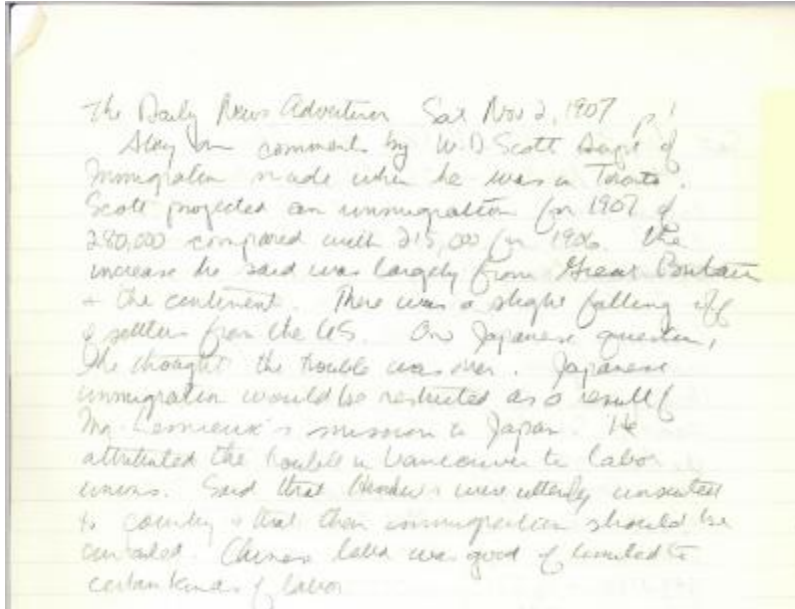 The Daily News Advertiser Sat Nov 2, 1907 p 1
Story on comments by W.D Scott Supt of
Immigration made when he was in Toronto.
Scott projected an immigration for 1907 of
280,000 compared with 215,000 for 1906. The
increase he said was largely from Great Britain
+ the continent. There was a slight falling off
of settlers from the US. On Japanese question,
he thought the trouble was over. Japanese
immigration would be restricted as a result of
Mr. Lemieux's mission to Japan. He
attributed the trouble in Vancouver to labor
unions. Said that Hindus were utterly unsuited
to country & that their immigration should be
curtailed. Chinese labor was good if limited to
certain kinds of labor